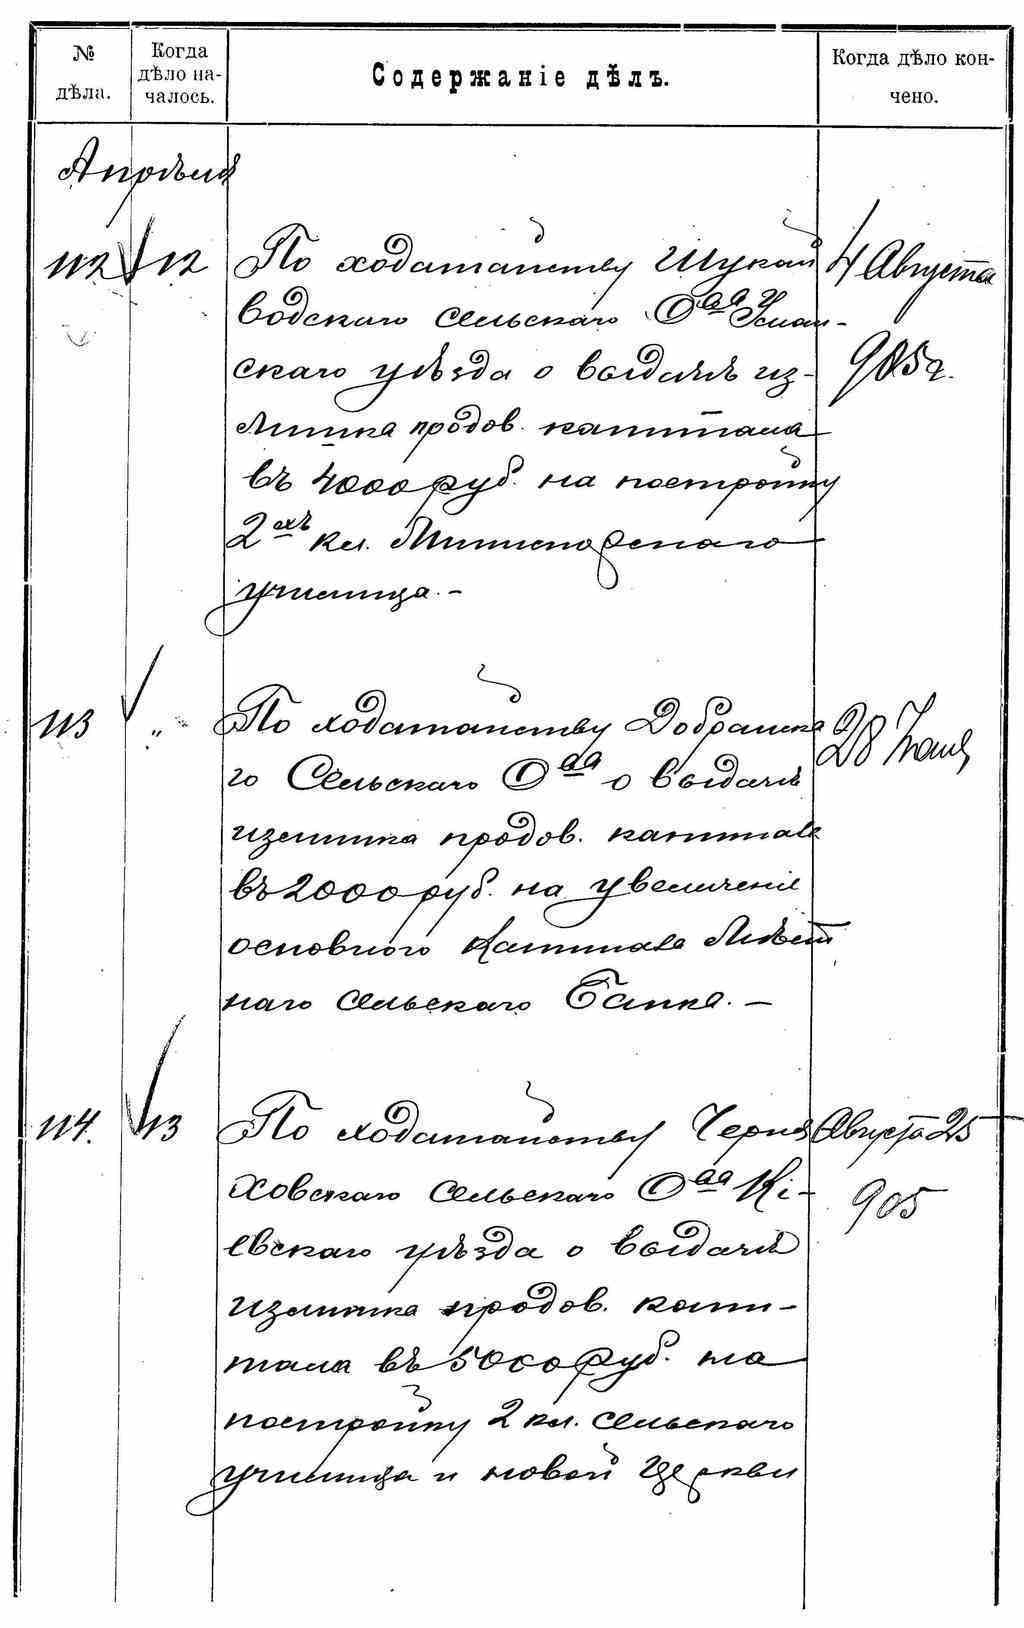 № дѣла.
Когда дѣло на-
чалось.
Содержаніе дѣлъ.
Когда дѣло кон-
чено.
Апрѣля
112 12 По ходатайству Шукай
водскаго сельскаго О-ва Уман-
скаго уѣзда о выдачѣ из-
лишка продов. капитала
въ 4000 руб. на постройку
2хъ кл. Министерскаго
училища.-
4 Августа
905 г.
113 " По ходатайству Добранска
го Сельскаго О-ва о выдачѣ
излишка продов. капитала
въ 2000 руб. на увеличеніе
основного капитала Мѣст
наго Сельскаго Банка.-
28 Іюня
114. 13 По ходатайству Черня
ховскаго сельскаго О-ва Кі-
евскаго уѣзда о выдачѣ
излишка продов. капи-
тала въ 5000 руб. на
постройку 2 кл. сельскаго
училища и новой Церкви
Августа 25
905